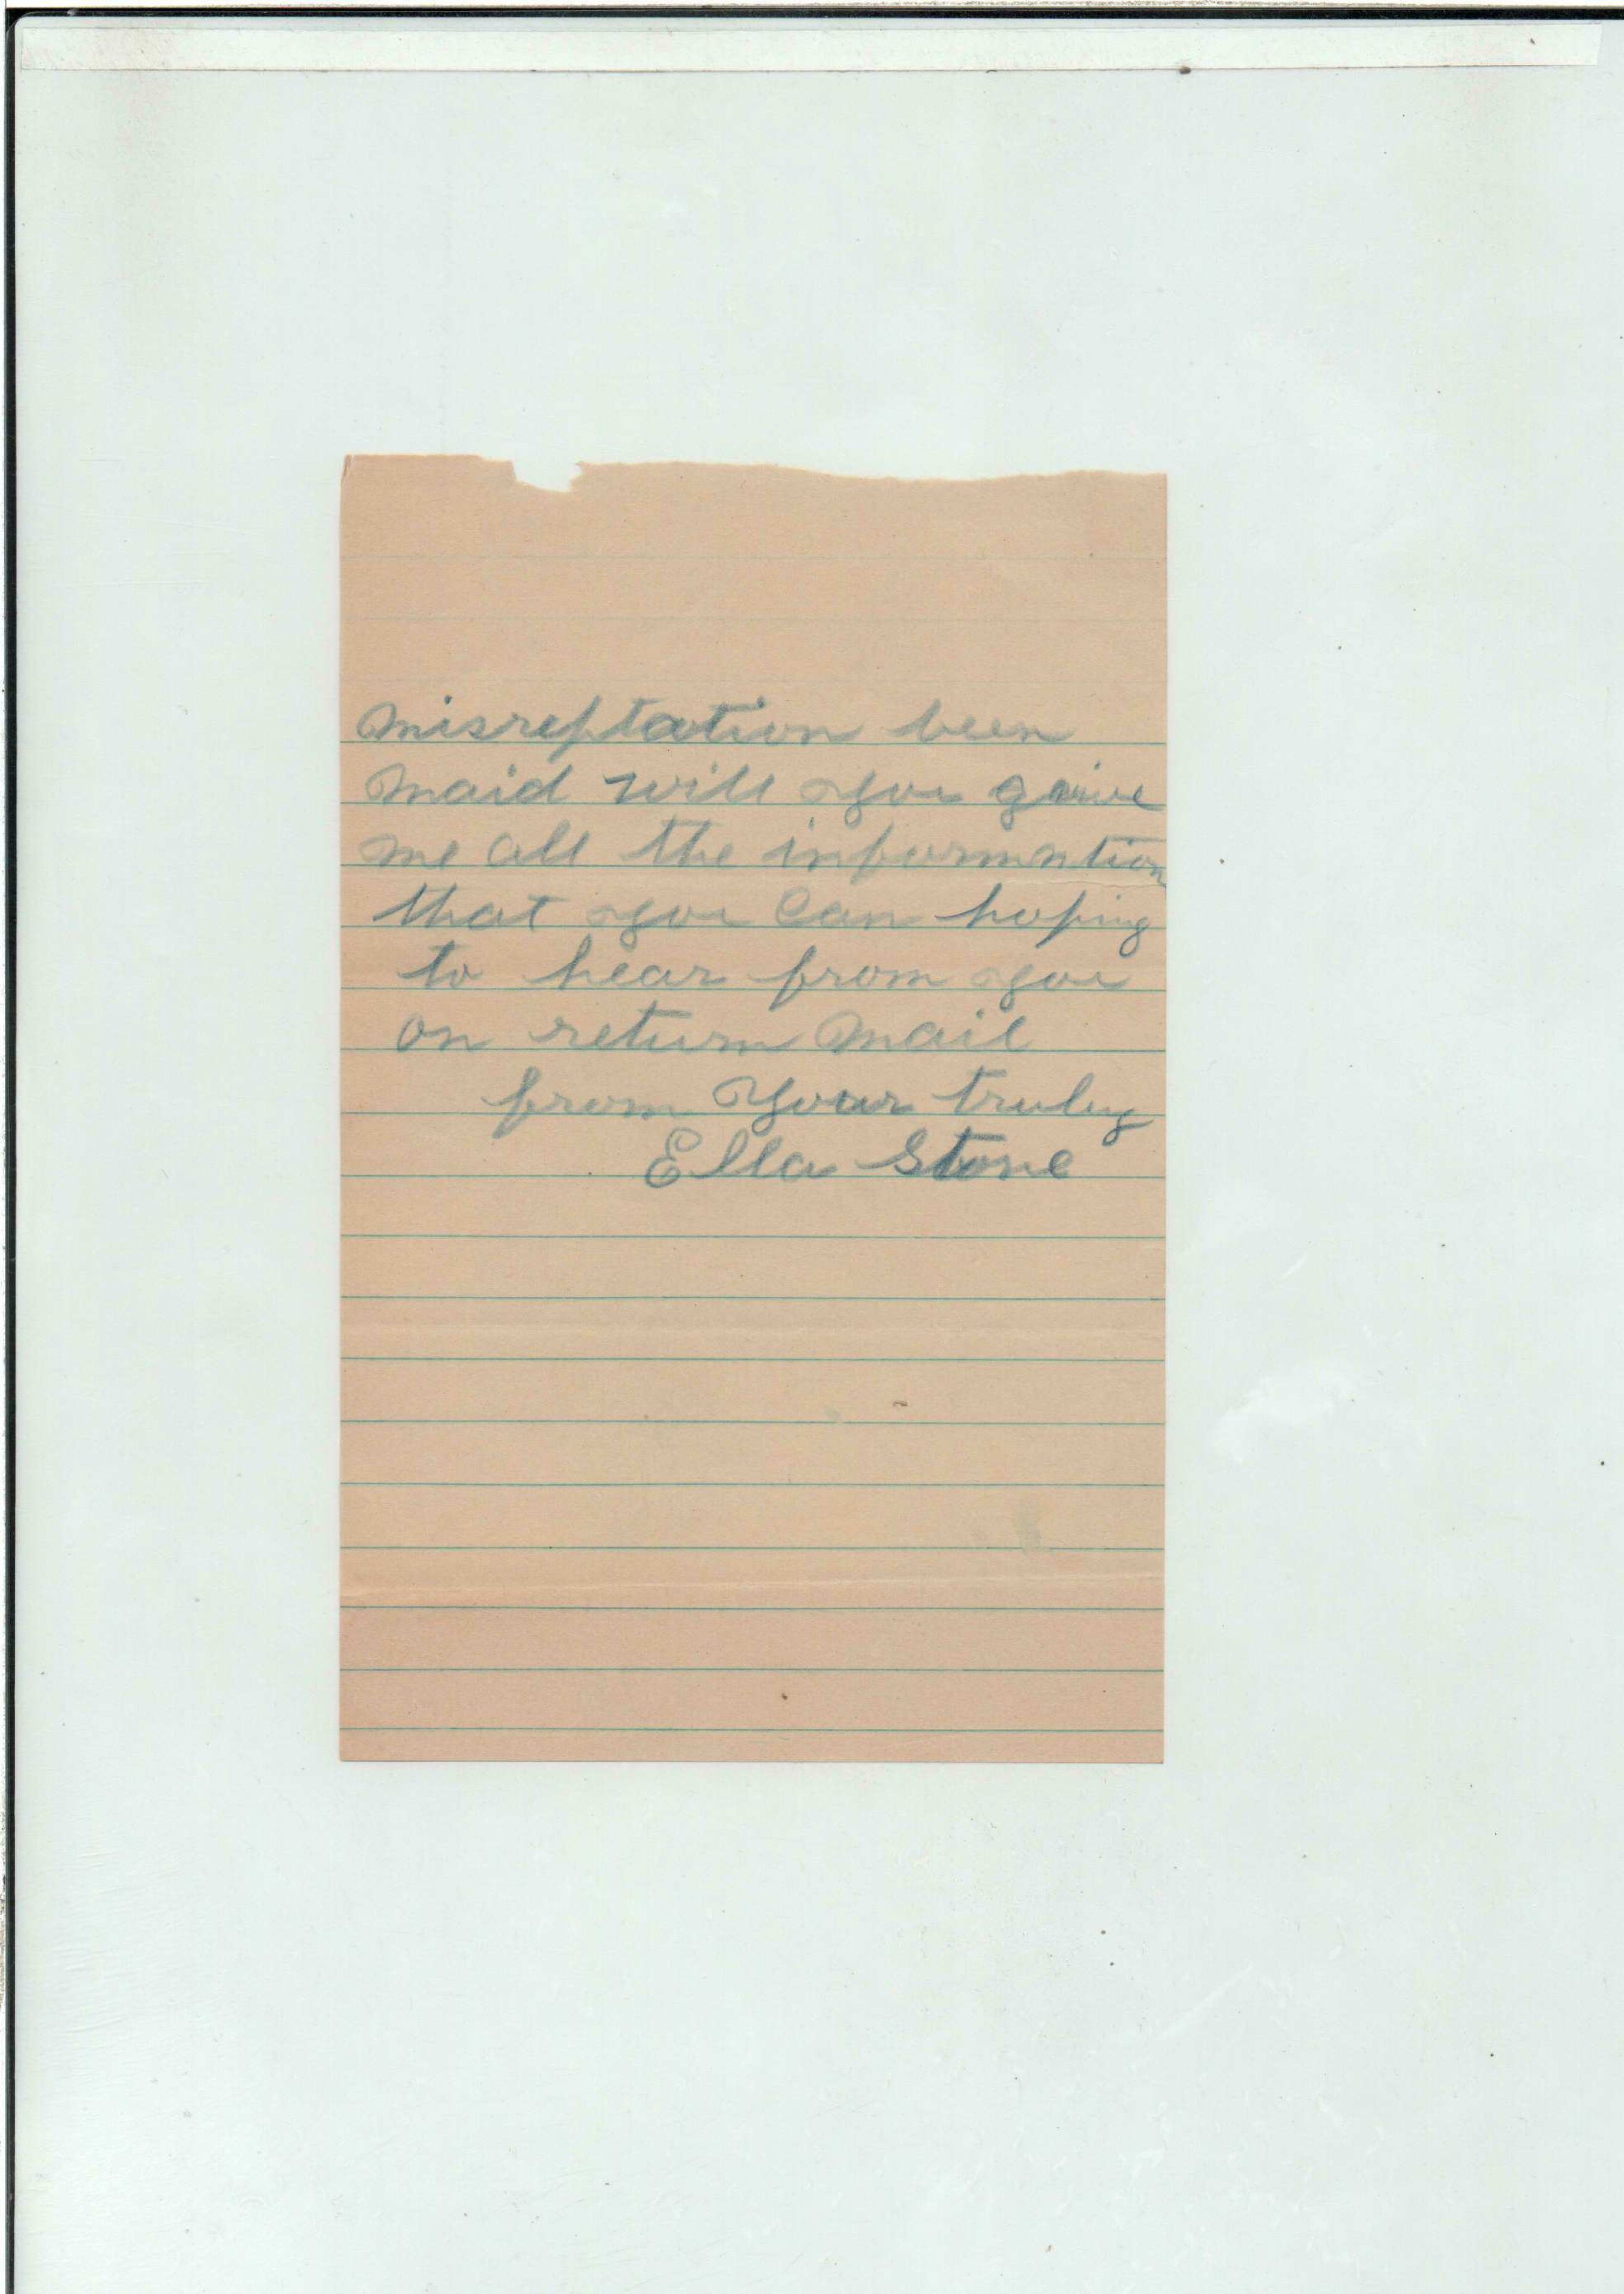 misreptation been
maid will you give
me all the information
that you can hoping
to hear from you
on return mail
from your truly
Ella Stone